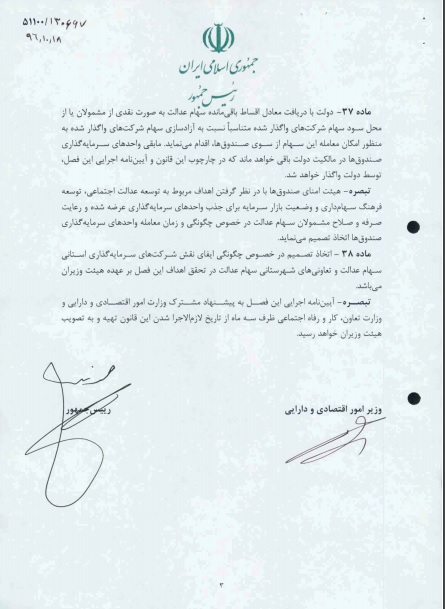 ۵۱۱۰۰/۱۳۰۶۹۷
۹۶,۱۰,۱۸
جمهوری اسلامی ایران
رئیس جمهور
ماده ۳۷- دولت با دریافت معادل اقساط باقی‌مانده سهام عدالت به صورت نقدی از مشمولان یا از
محل سود سهام شرکت‌های واگذار شده متناسباً نسبت به آزادسازی سهام شرکت‌های واگذار شده به
منظور امکان معامله این سهام از سوی صندوق‌ها، اقدام می‌نماید. مابقی واحدهای سرمایه‌گذاری
صندوق‌ها در مالکیت دولت باقی خواهد ماند که در چارچوب این قانون و آیین‌نامه اجرایی این فصل،
توسط دولت واگذار خواهد شد.
تبصره- هیئت امنای صندوق‌ها با در نظر گرفتن اهداف مربوط به توسعه عدالت اجتماعی، توسعه
فرهنگ سهام‌داری و وضعیت بازار سرمایه برای جذب واحدهای سرمایه‌گذاری عرضه شده و رعایت
صرفه و صلاح مشمولان سهام عدالت در خصوص چگونگی و زمان معامله واحدهای سرمایه‌گذاری
صندوق‌ها اتخاذ تصمیم می‌نماید.
ماده ۳۸- اتخاذ تصمیم در خصوص چگونگی ایفای نقش شرکت‌های سرمایه‌گذاری استانی
سهام عدالت و تعاونی‌های شهرستانی سهام عدالت در تحقق اهداف این فصل بر عهده هیئت وزیران
می‌باشد.
تبصره- آیین‌نامه اجرایی این فصل به پیشنهاد مشترک وزارت امور اقتصادی و دارایی و
وزارت تعاون، کار و رفاه اجتماعی ظرف سه ماه از تاریخ لازم‌الاجرا شدن این قانون تهیه و به تصویب
هیئت وزیران خواهد رسید.
وزیر امور اقتصادی و دارایی
رییس‌جمهور
۳